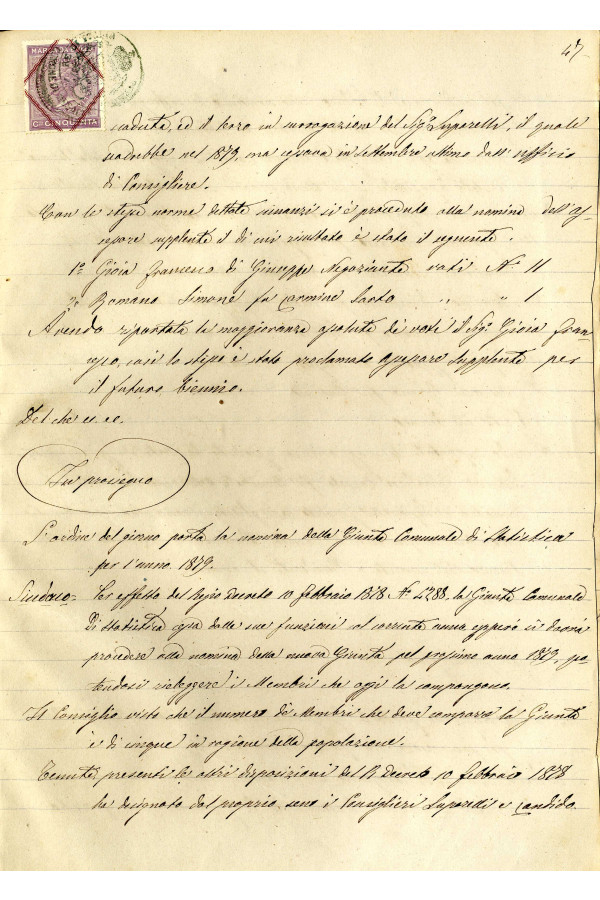 47
MARCA DA BOLLO
Ct. CINQUANTA
scaduta, ed il Coro in surrogazione del Sig. Supparelli, il quale
scadrebbe nel 1879, ma cessava in settembre ultimo dall'ufficio
di Consigliere.
Con le stesse norme dettate innanzi si è proceduto alla nomina dell'As
sessore supplente il di cui risultato è stato il seguente.
1º Gioia Francesco di Giuseppe Negoziante voti Nº 11
2º Romano Simone fu Carmine Sarto " " 1
Avendo riportata la maggioranza assoluta de' voti il Sig. Gioia Fran-
cesco, così lo stesso è stato proclamato Assessore Supplente per
il futuro biennio.
Del che ec. ec.
In prosieguo
L'ordine del giorno porta la nomina della Giunta Comunale di Statistica
per l'anno 1879.
Sindaco = Per effetto del Regio Decreto 10 febbraio 1878 Nº 4288 la Giunta Comunale
di Statistica cessa dalle sue funzioni al corrente anno epperò si dovrà
procedere alla nomina della nuova Giunta pel prossimo anno 1879, po-
tendosi rieleggere i Membri che oggi la compongono.
Il Consiglio visto che il numero di Membri che deve comporre la Giunta
è di cinque in ragione della popolazione.
Tenute presenti le altri disposizioni del R. Decreto 10 febbraio 1878
ha designato dal proprio seno i Consiglieri Supparelli e Candido.